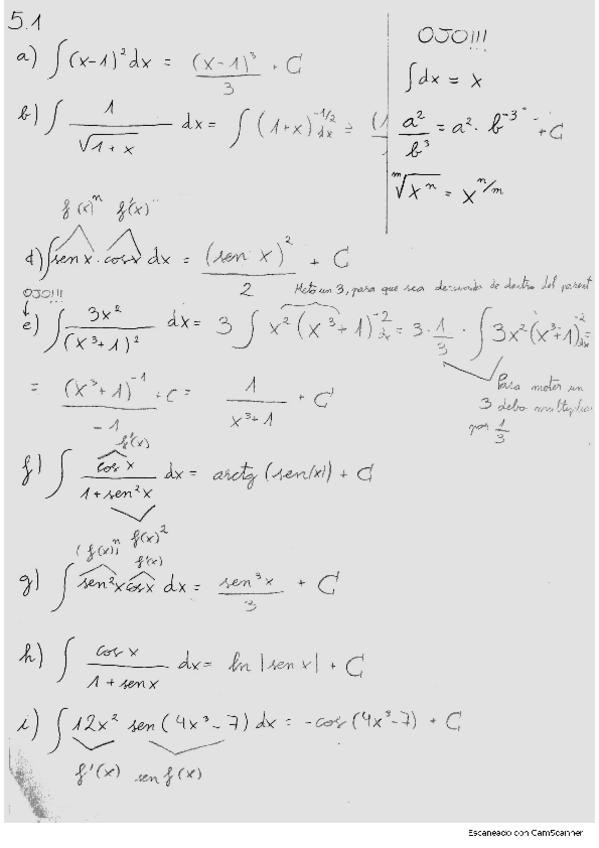 5.1
a) ∫ (x-1)² dx = (x-1)³/3 + C
OJO!!!
∫ dx = x
a²/b³ = a² · b⁻³
ᵐ√xⁿ = x^(n/m)
b) ∫ 1/√(1+x) dx = ∫ (1+x)^(-1/2) dx = (1 + C
f(x)ⁿ f'(x)
d) ∫ sen x · cos x dx = (sen x)²/2 + C
OJO!!!
Meto un 3, para que sea derivada de dentro del parent
e) ∫ 3x²/(x³+1)² dx = 3 ∫ x² (x³+1)⁻² dx = 3 · 1/3 · ∫ 3x² (x³+1)⁻² dx =
= (x³+1)⁻¹/-1 + C = 1/(x³+1) + C
Para meter un
3 debo multiplicar
por 1/3
f'(x)
f) ∫ cos x/(1+sen²x) dx = arctg (sen(x)) + C
f(x)²
(f(x))ⁿ f'(x)
g) ∫ sen²x cos x dx = sen³x/3 + C
h) ∫ cos x/(1+sen x) dx = ln |sen x| + C
i) ∫ 12x² sen (4x³-7) dx = -cos (4x³-7) + C
f'(x) sen f(x)
Escaneado con CamScanner